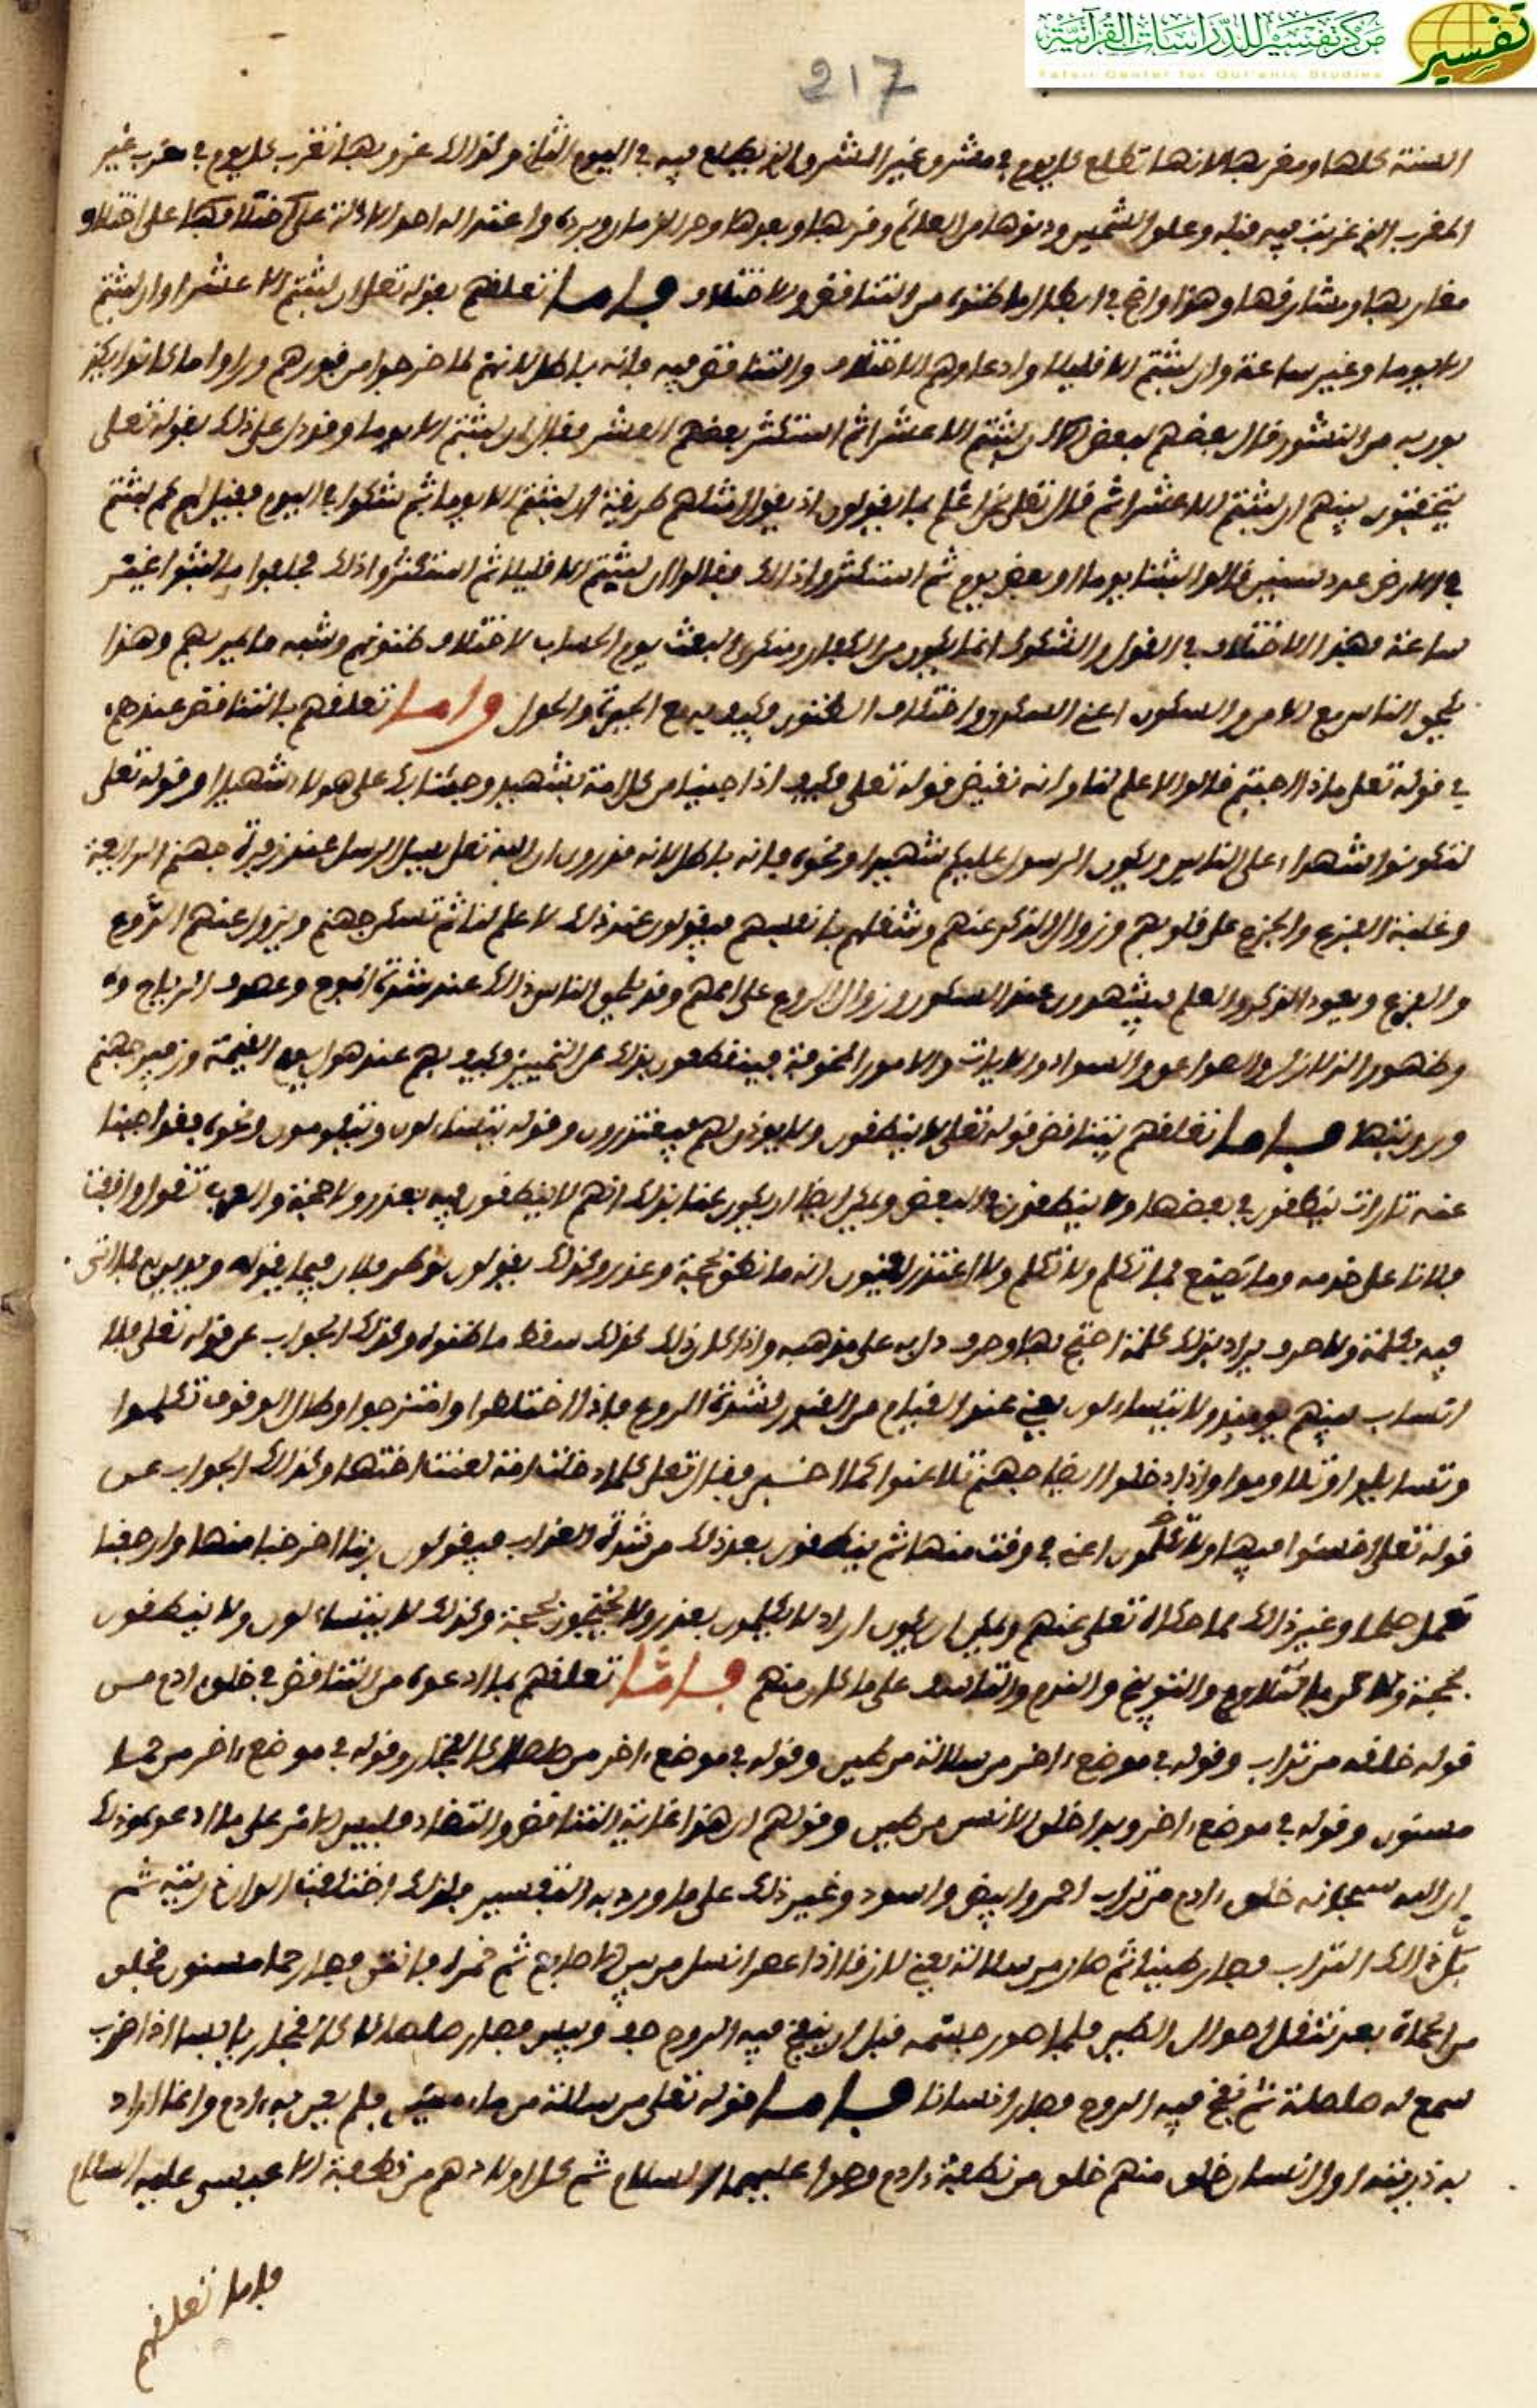 مركز تفسير للدراسات القرآنية
Tafsir Center for Qur'anic Studies
تفسير
217
السنة كلها ومغربها لانها تطلع كل يوم في مشرق غير المشرق الذي يطلع فيه في اليوم الثاني وكذالك عند غروبها تغرب كل يوم في مغرب غير
المغرب الذي غربت فيه قبله وعلو الشمس ودنوها من العالم وقربها وبعدها وحر الزمان وبرده واعتداله احد الادلة على اختلافها على اختلاف
مغاربها ومشارقها وهذا واضح في ابطال ما ظنوه من التناقض والاختلاف فاما تعلقهم بقوله تعلى ان لبثتم الا عشرا وان لبثتم
الا يوما وغير ساعة وان لبثتم الا قليلا وادعاوهم الاختلاف والتناقض فيه فانه باطل لانهم لما خرجوا من قبورهم وراوا ما كانوا يكذ
بون به من النشور قال بعضهم لبعض ان لبثتم الا عشرا ثم استكثر بعضهم العشر فقال ان لبثتم الا يوما وقد دل على ذلك بقوله تعلى
يتخفتون بينهم ان لبثتم الا عشرا ثم قال تعلى نحن اعلم بما يقولون اذ يقول امثلهم طريقة ان لبثتم الا يوما ثم شكوا في اليوم فقيل لهم كم لبثتم
في الارض عدد سنين قالوا لبثنا يوما او بعض يوم ثم استكثروا ذالك فقالوا ان لبثتم الا قليلا ثم استكثروا ذلك فحلفوا ما لبثوا غير
ساعة فهذا الاختلاف في القول والشكوك انما يكون من الكفار ومنكري البعث يوم الحساب لاختلاف ظنونهم وشبه ما يمر بهم وهذا
يلحق الناس مع الامن والسكون اعني السكر واختلاف الظنون فكيف به مع الحيرة والهول واما تعلقهم بالتناقض عندهم
في قوله تعلى ماذا اجبتم قالوا لا علم لنا وانه نقيض قوله تعلى فكيف اذا جينا من كل امة بشهيد وجئنا بك على هولاء شهيدا وقوله تعلى
لتكونوا شهداء على الناس ويكون الرسول عليكم شهيدا ونحوه فانه باطل لانه قد روي ان الله تعلى يسل الرسل عند زفرة جهنم الرابعة
وغلبة الفزع والجزع على قلوبهم وزوال الذكر عنهم وشغلهم بانفسهم فيقولون عند ذلك لا علم لنا ثم تسكن جهنم ويزول عنهم الروع
والفزع ويعود الذكر والعلم فيشهدون عند السكون وزوال الروع على اممهم وقد يلحق الناس ذالك عند شدة الموج وعصوف الرياح
وظهور الزلازل والصواعق والسواد والايات والامور المخوفة فينقطعون بذلك عن التمييز فكيف بهم عند هول يوم القيمة وزفير جهنم
ورويتها فاما تعلقهم بتناقض قوله تعلى لا ينطقون ولا يوذن لهم فيعتذرون وقوله يتساءلون ويتلاومون ونحوه فقد اجبنا
عنه تارات ينطقون في بعضها ولا ينطقون في البعض ويمكن ايضا ان يكون عنا بذلك انهم لا ينطقون فيه بعذر ولا حجة والعرب تقول واقفت
فلانا على خدمه وما تصنع فما تكلم ولا تكلم ولا اعتذر يعنون انه ما نطق بحجة وعذر وكذلك يقولون نوظر فلان فيما يقوله
فيه بكلمة ولا حرف يراد بذلك كلمة احتج بها وحرف دل به على مذهبه واذا كان ذلك كذلك سقط ما ظنوه وكذلك الجواب عن قوله تعلى فلا
انساب بينهم يوميذ ولا يتساءلون يعني عند القيام من القبور وشدة الروع فاذا اختلطوا وامتزجوا وطال الوقوف تكلموا
وتساءلوا وتلاوموا واذا دخلوا ايضا جهنم تلاعنوا كما اخبر فقال تعلى كلما دخلت امة لعنت اختها وكذالك الجواب عن
قوله تعلى اخسئوا فيها ولا تكلمون اعني في وقت منها ثم ينطقون بعد ذلك من شدة العذاب فيقولون ربنا اخرجنا منها وارجعنا
نعمل صلحا وغير ذالك مما حكاه تعلى عنهم ويمكن ان يكون اراد لا يكلمون بعذر ولا يحتجون بحجة وكذلك لا يتساءلون ولا ينطقون
بحجة ولكن بالتلاوم والتوبيخ والندم والتاسف على ما كان منهم فاما تعلقهم بما ادعوه من التناقض في خلق ادم من
قوله خلقه من تراب وقوله في موضع ءاخر من سلالة من طين وقوله في موضع ءاخر من صلصال كالفخار وقوله في موضع ءاخر من حما
مسنون وقوله في موضع ءاخر وبدا خلق الانسن من طين وقولهم ان هذا غاية التناقض والتضاد فليس الامر على ما ادعو بذلك
ان الله سبحانه خلق ءادم من تراب احمر وابيض واسود وغير ذلك على ما ورد به التفسير فلذلك اختلفت الوان ذريته ثم
بل ذالك التراب فصار طينا ثم صار من سلالة يعني لازقا اذا عصر انسل من بين الاصابع ثم خمره فانتن فصار حما مسنون فخلق
من الحماة بعد تنقل احوال الطين فلما صور جسمه قبل ان ينفخ فيه الروح جف ويبس فصار صلصالا كالفخار يابسا اذا ضرب
سمع له صلصلة ثم نفخ فيه الروح فصار انسانا فاما قوله تعلى من سلالة من ماء مهين فلم يعن به ءادم وانما اراد
به ذريته اول الانسان خلق منهم خلق من نطفة ءادم وحوا عليهما السلام ثم كل اولادهم من نطفة الا عيسى عليه السلام
فاما تعلقهم